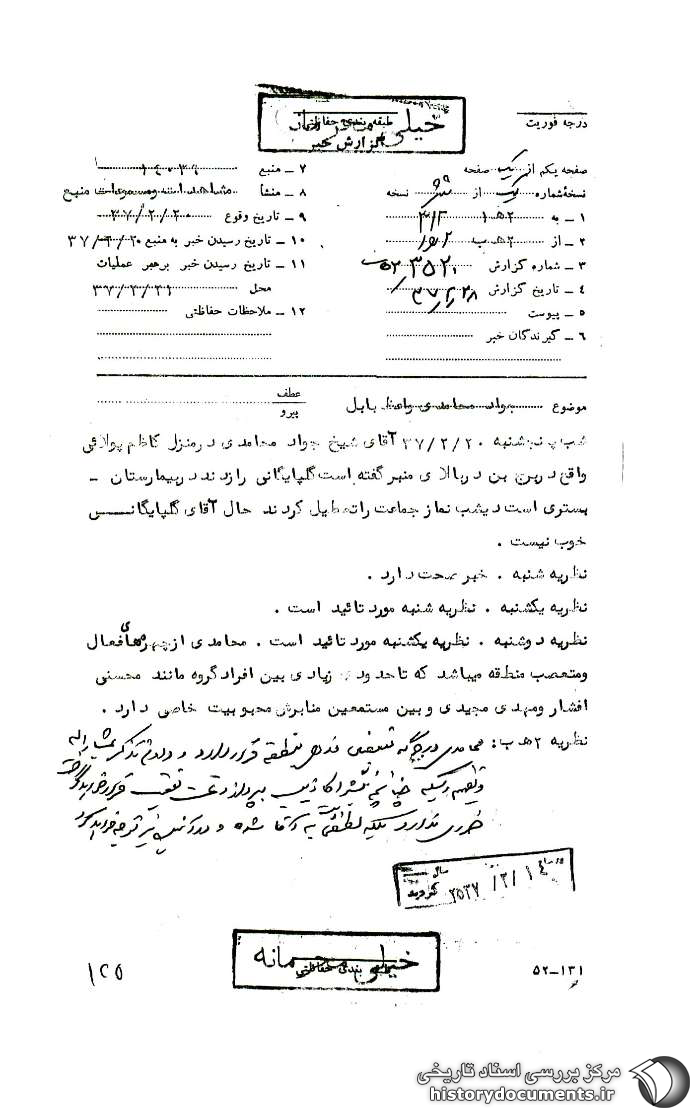 خیلی محرمانه
طبقه بندی حفاظتی
گزارش خبر
درجه فوریت
صفحه یکم از یک صفحه
نسخه شماره یک از شش نسخه
۱ ـ به ۲هـ۱ ۳۱۲
۲ ـ از ۲هـ ب
۳ ـ شماره گزارش ۳۵۲۰
۴ ـ تاریخ گزارش ۳۷/۲/۲۸
۵ ـ پیوست
۶ ـ گیرندگان خبر
۷ ـ منبع ۱۴۰۳۱
۸ ـ منشأ مشاهدات و مسموعات منبع
۹ ـ تاریخ وقوع ۳۷/۲/۲۰
۱۰ ـ تاریخ رسیدن خبر به منبع ۳۷/۲/۲۰
۱۱ ـ تاریخ رسیدن خبر برهبر عملیات
محل ۳۷/۲/۲۱
۱۲ ـ ملاحظات حفاظتی
موضوع جواد محامدی واعظ بابل
عطف
پیرو
شب پنجشنبه ۳۷/۲/۲۰ آقای شیخ جواد محامدی درمنزل کاظم پولائی
واقع دربرج بن دربالای منبر گفته است گلپایگانی را زدند دربیمارستان ـ
بستری است دیشب نماز جماعت را تعطیل کردند حال آقای گلپایگانـــی
خوب نیست .
نظریه شنبه . خبر صحت دارد .
نظریه یکشنبه . نظریه شنبه مورد تائید است .
نظریه دوشنبه . نظریه یکشنبه مورد تائید است . محامدی ازچهره‌های فعال
ومتعصب منطقه میباشد که تاحدودی زیادی بین افراد گروه مانند محسنی
افشار ومهدی مجیدی و بین مستمعین منابرش محبوبیت خاصی دارد .
نظریه ۲هـ ب : محامدی
۲۵۳۷/۳/۱
گردید
خیلی محرمانه
طبقه بندی حفاظتی
۱۲۵
۵۲-۱۳۱
مرکز بررسی اسناد تاریخی
historydocuments.ir